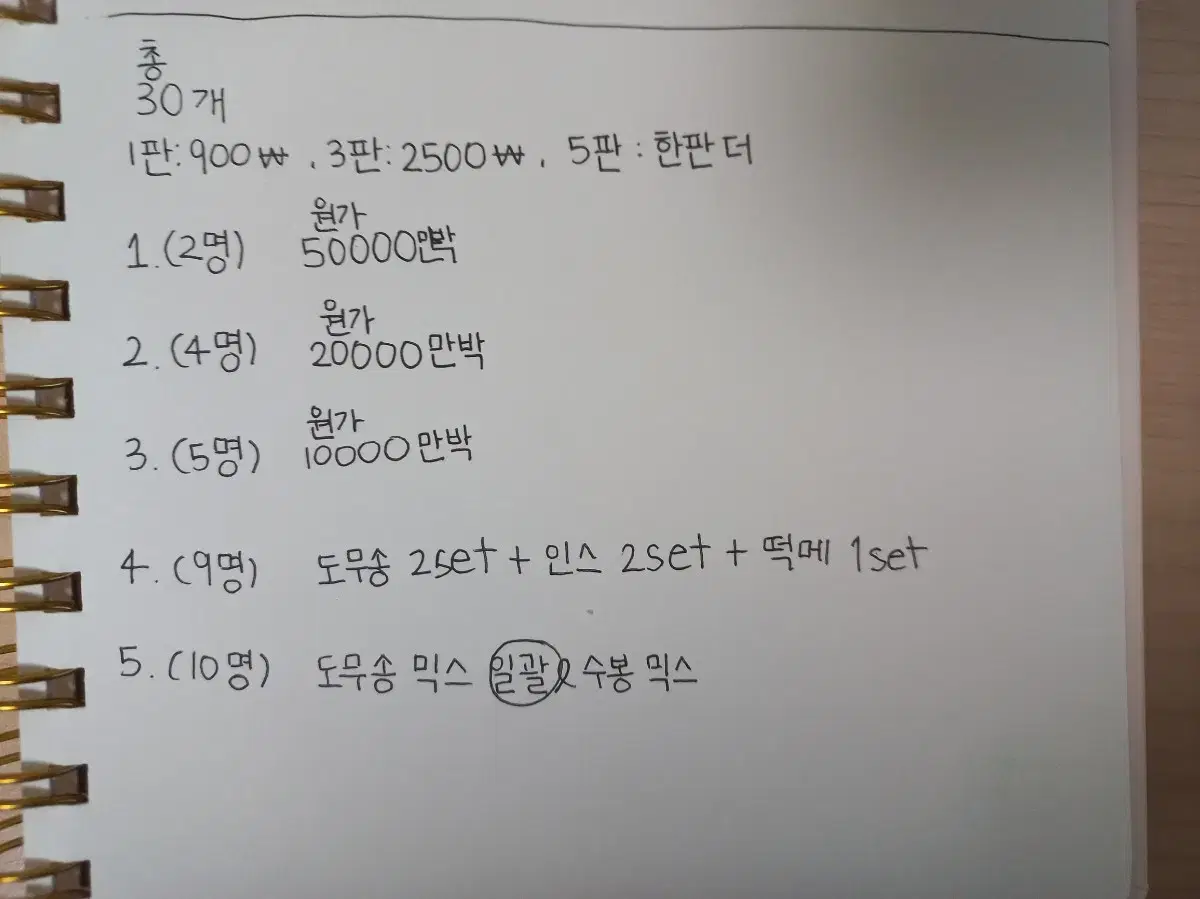 총
30개
1판:900₩ . 3판:2500₩. 5판 : 한판 더
원가
1.(2명) 50000만박
원가
2.(4명) 20000만박
원가
3.(5명) 10000만박
4.(9명) 도무송 2set + 인스 2set + 떡메 1set
5.(10명) 도무송 믹스 일괄 수봉 믹스